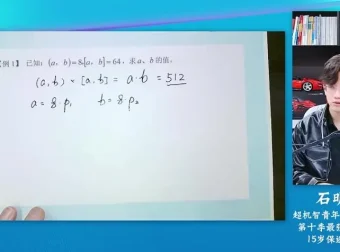 例1】已知:(a,b)=8,[a,b]=64,求a、b的值。
(a,b) = [a,b] = a·b = 512
a = 8·p₁ b = 8·p₂
超机智青年
第十季最强
15岁保送